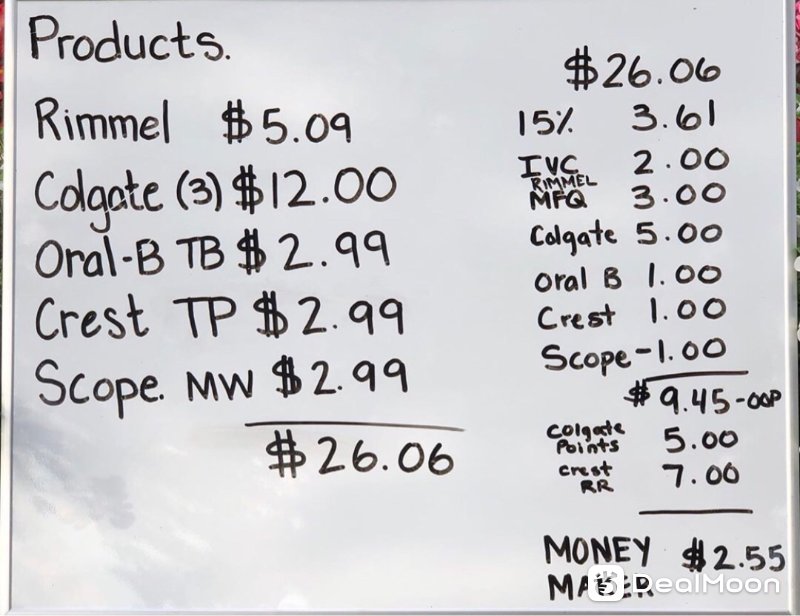 Products.
Rimmel $5.09
Colgate (3) $12.00
Oral-B TB $2.99
Crest TP $2.99
Scope. MW $2.99
$26.06
$26.06
15% 3.61
IVC 2.00
RIMMEL
MFQ 3.00
Colgate 5.00
Oral B 1.00
Crest 1.00
Scope -1.00
$9.45-OOP
Colgate
Points 5.00
Crest
RR 7.00
MONEY $2.55
DealMoon